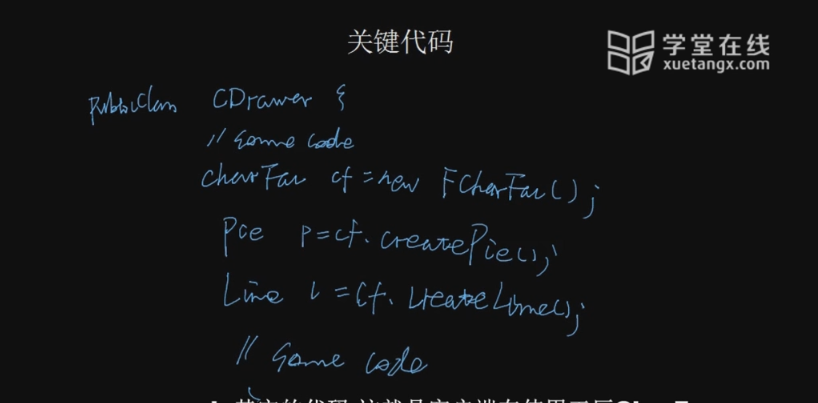 关键代码
学堂在线
xuetangx.com
public Class CDrawer {
// some code
charFac cf = new FCharFac();
Pie P=cf.createPie();
Line l =cf.createLine();
// some code